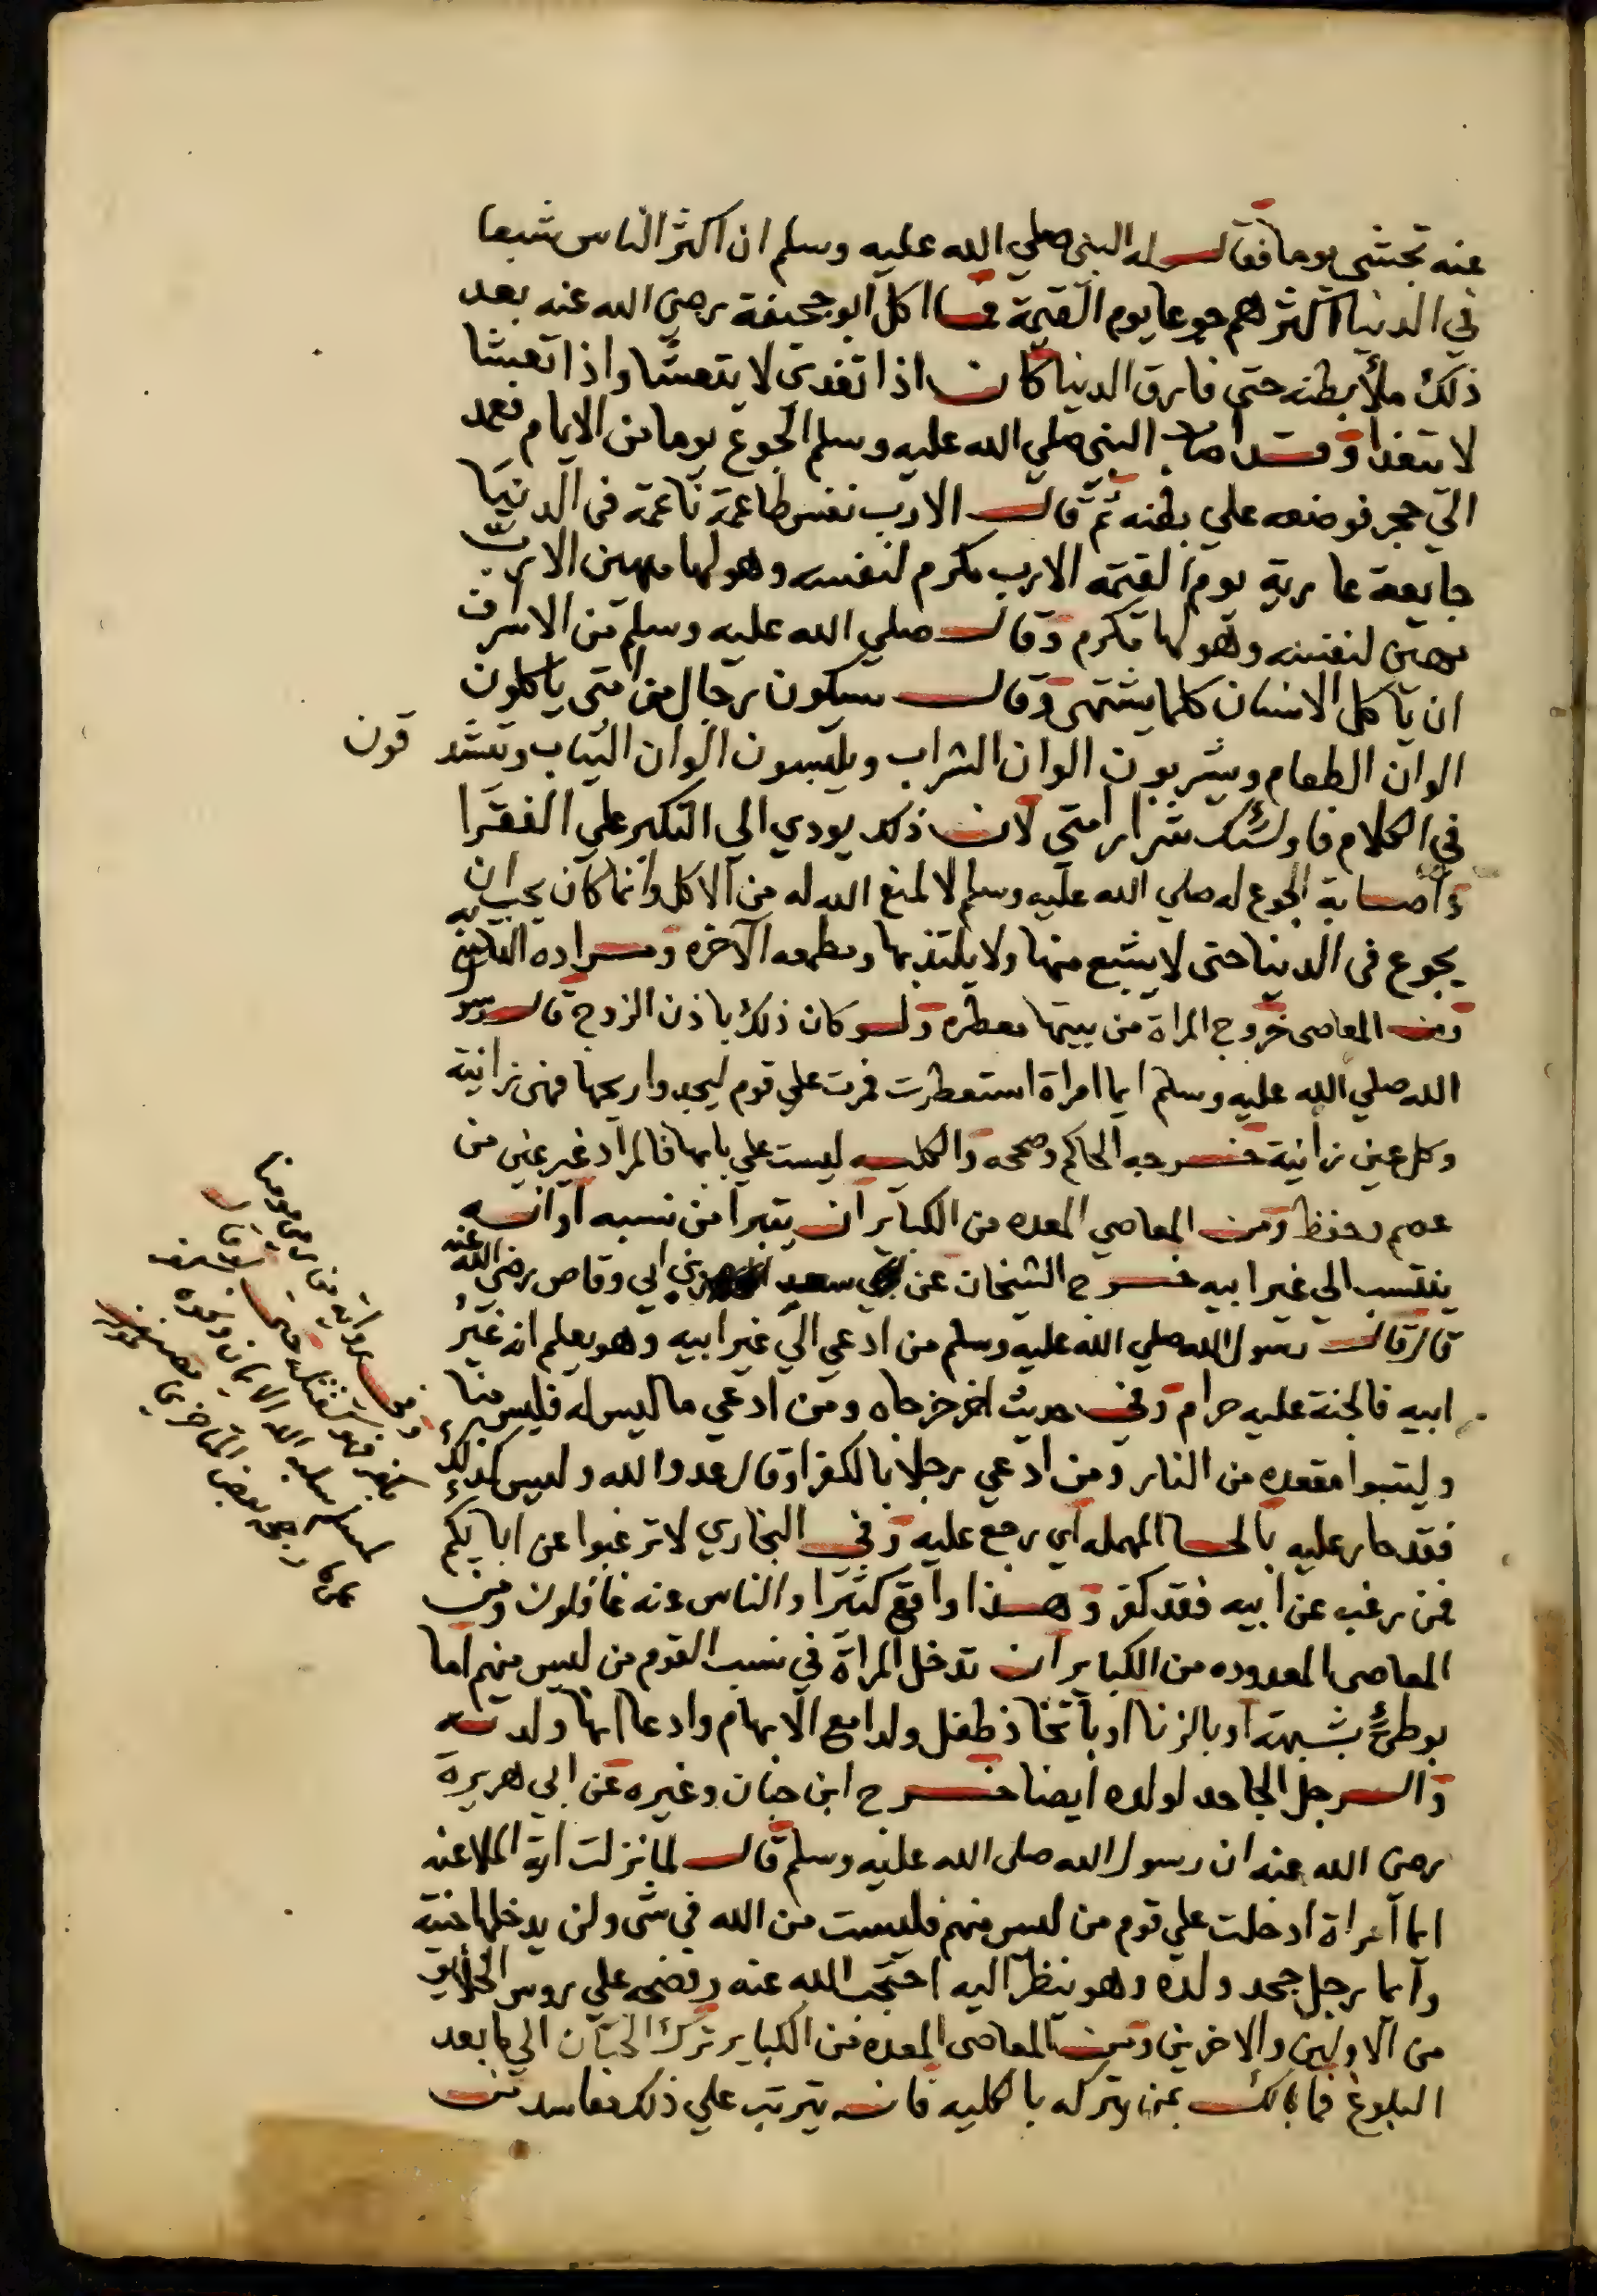 عنه تجشى يوما فقال له النبي صلي الله عليه وسلم ان اكثر الناس شبعا
في الدنيا اكثرهم جوعا يوم القيمة فما اكل ابو جحيفة رضي الله عنه بعد
ذلك ملأ بطنه حتى فارق الدنيا كان اذا تغدى لا يتعشا واذا تعشا
لا يتغدا وقد اصاب النبي صلي الله عليه وسلم الجوع يوما من الايام فعمد
الي حجر فوضعه علي بطنه ثم قال الا رب نفس طاعمة ناعمة في الدنيا
جايعة عارية يوم القيمة الا رب مكرم لنفسه وهو لها مهين الا رب
مهين لنفسه وهو لها مكرم وقال صلي الله عليه وسلم من الاسراف
ان ياكل الانسان كلما يشتهى وقال سيكون رجال من امتي ياكلون
الوان الطعام ويشربون الوان الشراب ويلبسون الوان الثياب ويتشد قون
في الكلام فاولئك شرار امتي لان ذلك يودي الي التكبر علي الفقرا
واصابة الجوع له صلي الله عليه وسلم لا لمنع الله له من الاكل وانما كان يحب ان
يجوع في الدنيا حتى لا يشبع منها ولا يلتذ بها ومطمعه الآخره ومراده
ومن المعاصى خروج المراة من بيتها معطره ولو كان ذلك باذن الزوج قال رسو
الله صلي الله عليه وسلم ايما امراة استعطرت فمرت علي قوم ليجدوا ريحها فهى زانية
وكل عين زانية خرجه الحاكم وصححه والكلية ليست علي بابها فالمراد غير عين من
عصم وحفظ ومن المعاصي المعده من الكباير ان يتبرا من نسبه او انه
ينتسب الي غير ابيه خرج الشيخان عن سعد بن ابي وقاص رضي الله عنه
قال قال رسول الله صلي الله عليه وسلم من ادعي الي غير ابيه وهو يعلم انه غير
ابيه فالجنة عليه حرام وفي حديث اخر خرجاه ومن ادعي ما ليس له فليس منا
وليتبوا مقعده من النار ومن ادعي رجلا بالكفر او قال عدو الله وليس كذلك
فقد حار عليه بالحا المهمله اي رجع عليه وفي البخاري لا ترغبوا عن ابايكم
فمن رغب عن ابيه فقد كفر وهذا واقع كثيرا والناس عنه غافلون ومن
المعاصى المعدوده من الكباير ان تدخل المراة في نسب القوم من ليس منهم اما
بوطئ بشبهة او بالزنا او باتخاذ طفل ولدا مع الابهام وادعا انها ولدته
والرجل الجاحد لولده ايضا خرج ابن حبان وغيره عن ابي هريرة
رضي الله عنه ان رسول الله صلى الله عليه وسلم قال لما نزلت اية الملاعنه
ايما امراة ادخلت علي قوم من ليس منهم فليست من الله في شى ولن يدخلها جنته
وايما رجل جحد ولده وهو ينظر اليه احتجب الله عنه وفضحه علي روس الخلايق
من الاولين والاخرين ومن المعاصى المعده من الكباير ترك الختان الي ما بعد
البلوغ فما بالك بمن يتركه بالكليه فانه يترتب علي ذلك مفاسد من